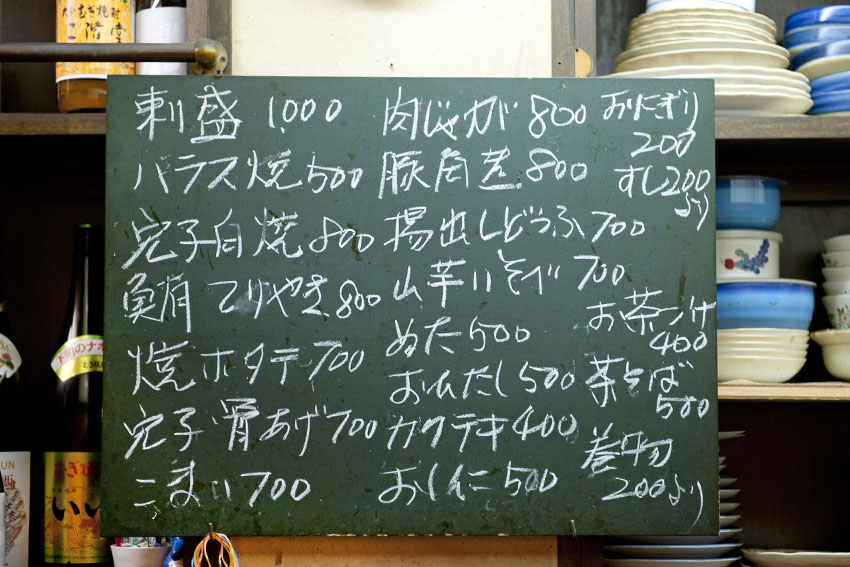 刺盛 1,000
バラス焼 500
穴子白焼 800
鮪てりやき 800
焼ホタテ 700
穴子骨あげ 700
こまい 700
肉じゃが 800
豚角煮 800
揚出しどうふ 700
山芋いそべ 700
ぬた 500
おひたし 500
カクテキ 400
おしんこ 500
おにぎり
200
すし 200
より
お茶づけ
400
茶そば
500
巻物
200より